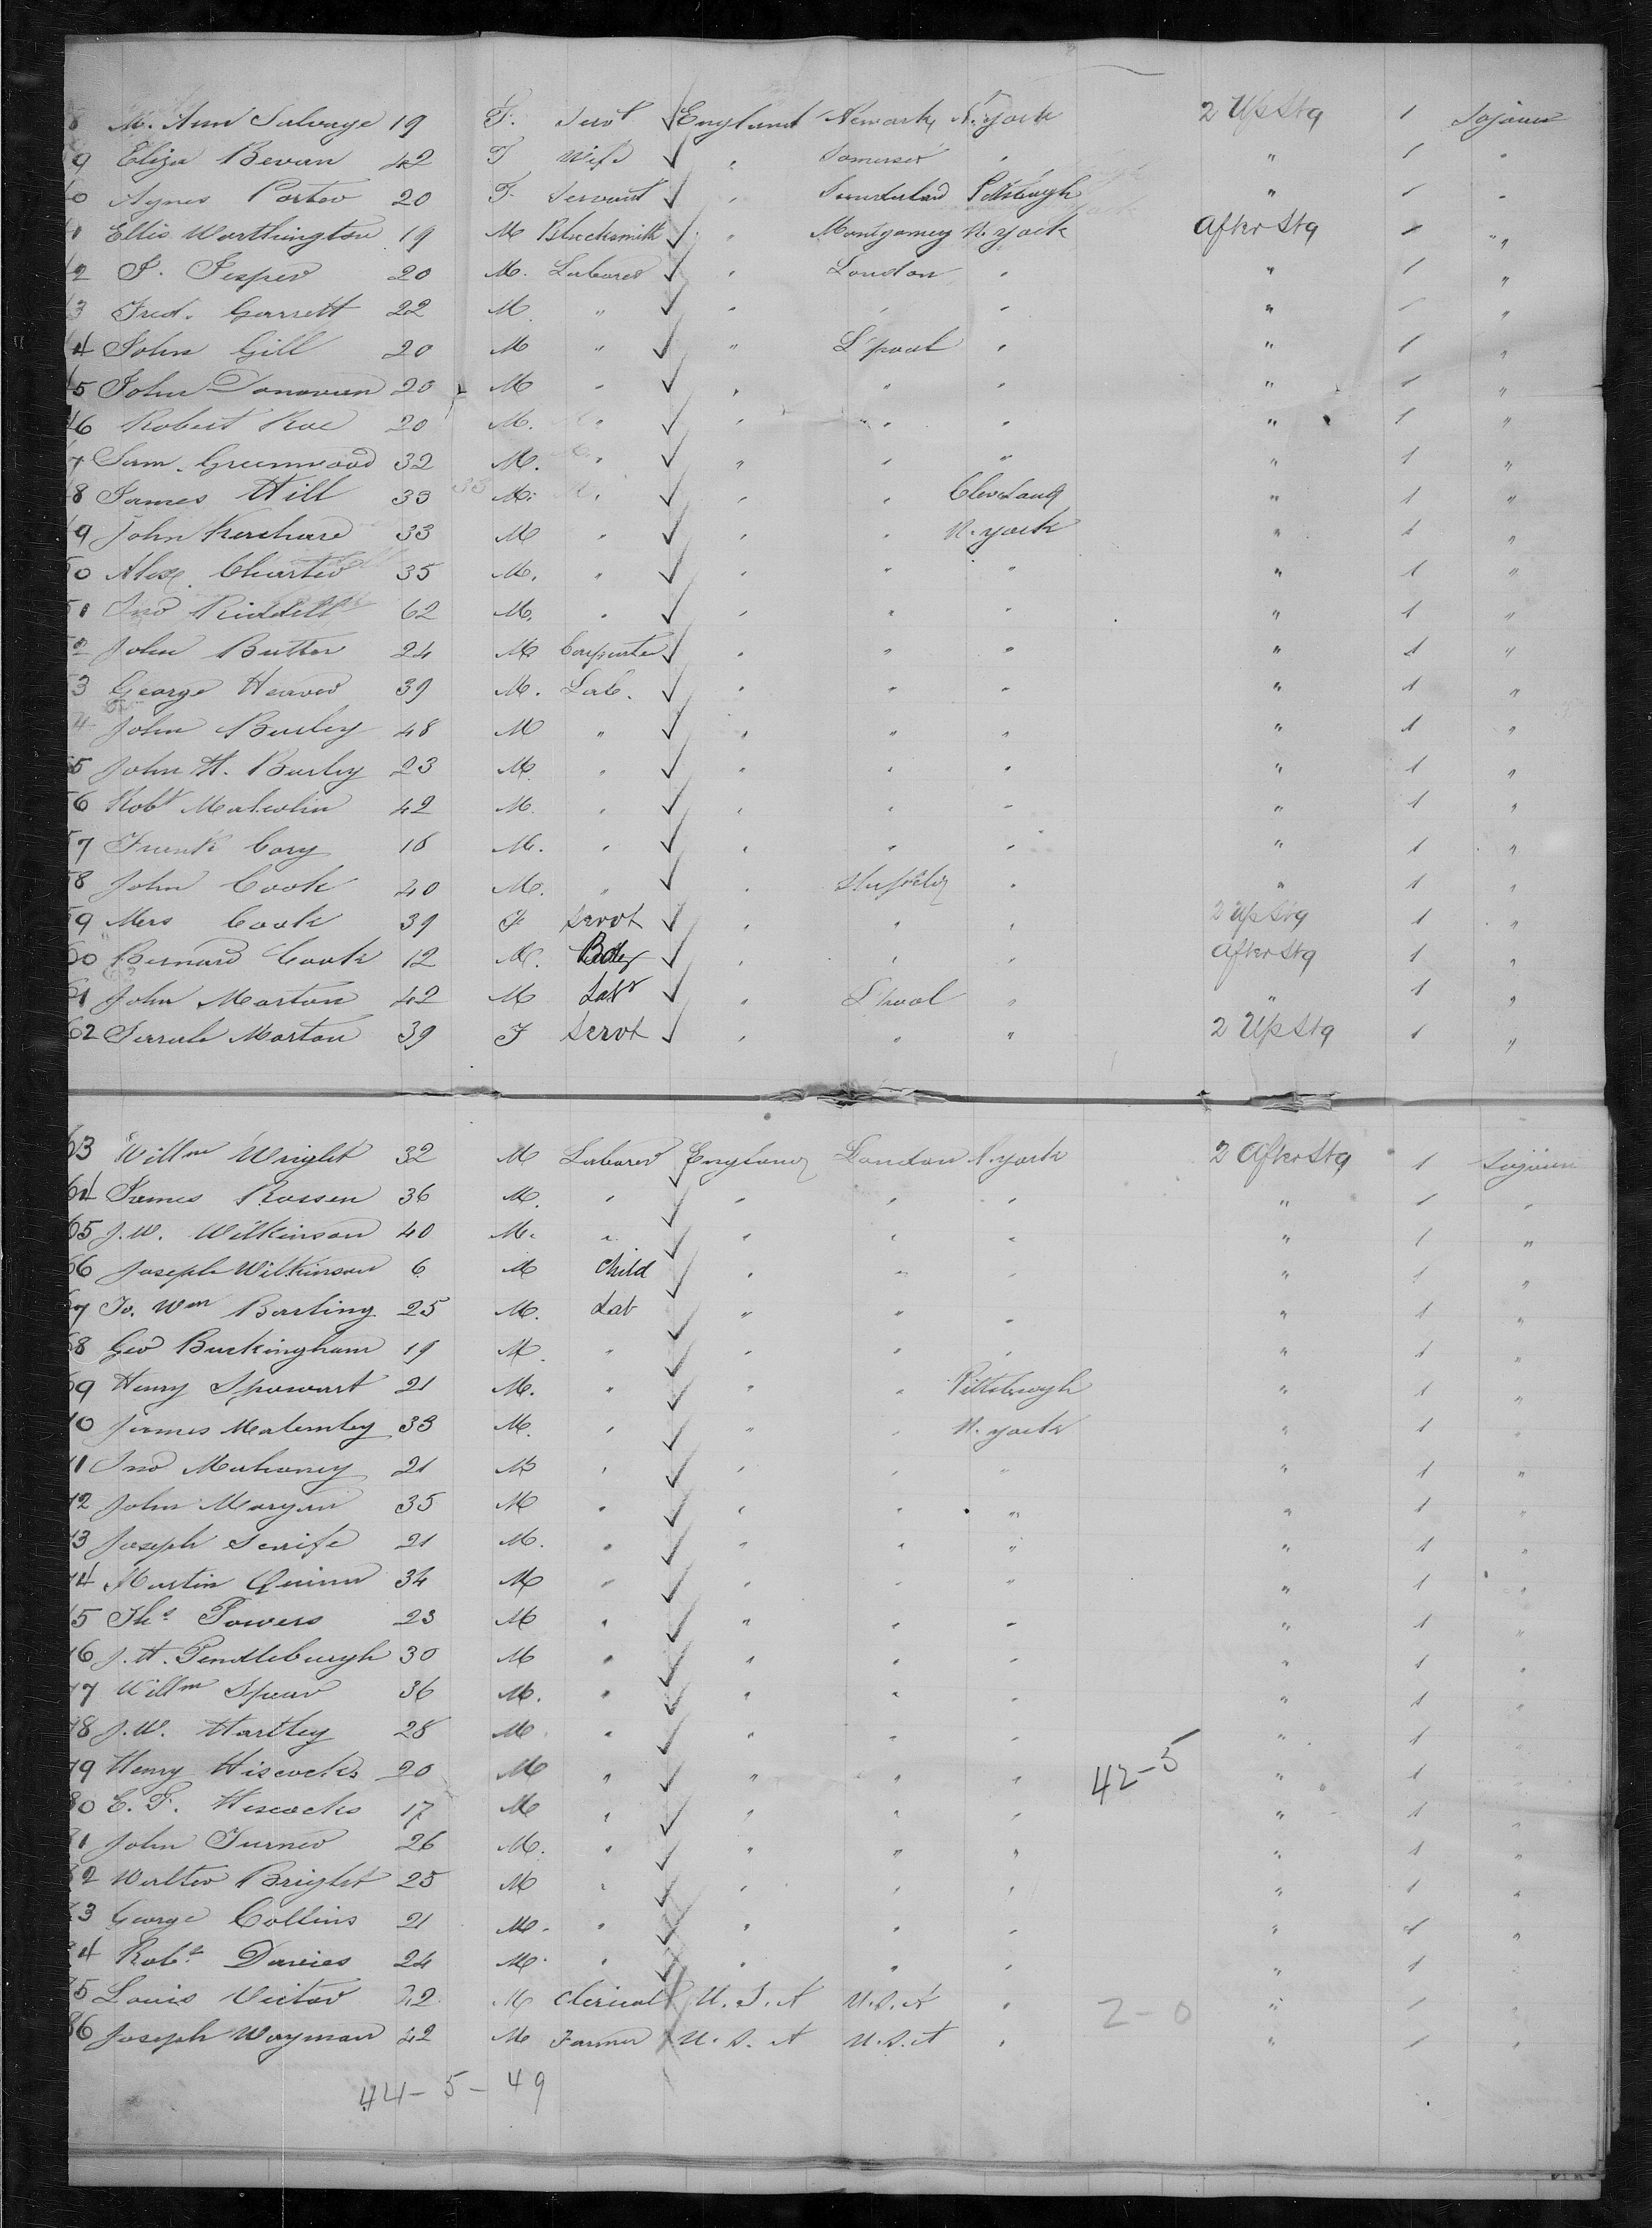 8 M. Ann Salvage 19 F. Servt England Newark N. york 2 Up Stg 1 Sojourn
9 Eliza Bevan 42 F Wife " Somerset " " 1 "
0 Agnes Porter 20 F. Servant " Sunderland Pittsburgh " 1 "
1 Ellis Worthington 19 M Blacksmith " Montgomery N. york After Stg 1 "
2 F. Jesper 20 M. Laborer " London " " 1 "
3 Fred. Garrett 22 M. " " " " " 1 "
4 John Gill 20 M " " L'pool " " 1 "
5 John Donovan 20 M " " " " " 1 "
46 Robert Roe 20 M. " " " " " 1 "
7 Sam. Greenwood 32 M. " " " " " 1 "
8 James Hill 33 M. " " " Cleveland " 1 "
9 John Kershaw 33 M " " " N. york " 1 "
50 Alex. Charter 35 M. " " " " " 1 "
51 Jno Riddell 62 M. " " " " " 1 "
52 John Butter 24 M Carpenter " " " " 1 "
3 George Heaver 39 M. Lab. " " " " 1 "
4 John Burley 48 M " " " " " 1 "
55 John H. Burley 23 M. " " " " " 1 "
56 Robt Malcolm 42 M. " " " " " 1 "
57 Frank Cory 18 M. " " " " " 1 "
58 John Cook 40 M. " " " " 1 "
59 Mrs Cook 39 F Servt " " " 2 Up Stg 1 "
60 Bernard Cook 12 M. Boy " " " After Stg 1 "
61 John Morton 42 M Labr " L'pool " " 1 "
62 Sarah Morton 39 F Servt " " " 2 Up Stg 1 "
63 Willm Wright 32 M Laborer England London N. york 2 After Stg 1 Sojourn
64 James Rossen 36 M. " " " " " 1 "
65 J. W. Wilkinson 40 M. " " " " " 1 "
66 Joseph Wilkinson 6 M Child " " " " 1 "
67 Jo. Wm Barling 25 M. Lab " " " " 1 "
68 Geo Buckingham 19 M. " " " " " 1 "
69 Henry Spowart 21 M. " " " Pittsburgh " 1 "
70 James 33 M. " " " N. york " 1 "
71 Jno Mahoney 21 M " " " " " 1 "
72 John Morgan 35 M " " " " " 1 "
73 Joseph Scrife 21 M. " " " " " 1 "
74 Martin Quinn 34 M " " " " " 1 "
75 Ths Powers 23 M " " " " " 1 "
76 J. H. Pendleburgh 30 M " " " " " 1 "
77 Willm Spear 36 M. " " " " " 1 "
78 J. W. Hartley 28 M " " " " " 1 "
79 Henry Hiscocks 20 M " " " " 42-5 " 1 "
80 E. F. Hiscocks 17 M " " " " " 1 "
81 John Turner 26 M. " " " " " 1 "
82 Walter Bright 25 M " " " " " 1 "
83 George Collins 21 M. " " " " " 1 "
84 Robt Davies 24 M. " " " " " 1 "
85 Louis Victor 32 M Clerical U. S. A U. S. A " 2-0 " 1 "
86 Joseph Wayman 42 M Farmer U. S. A U. S. A " " 1 "
44-5-49